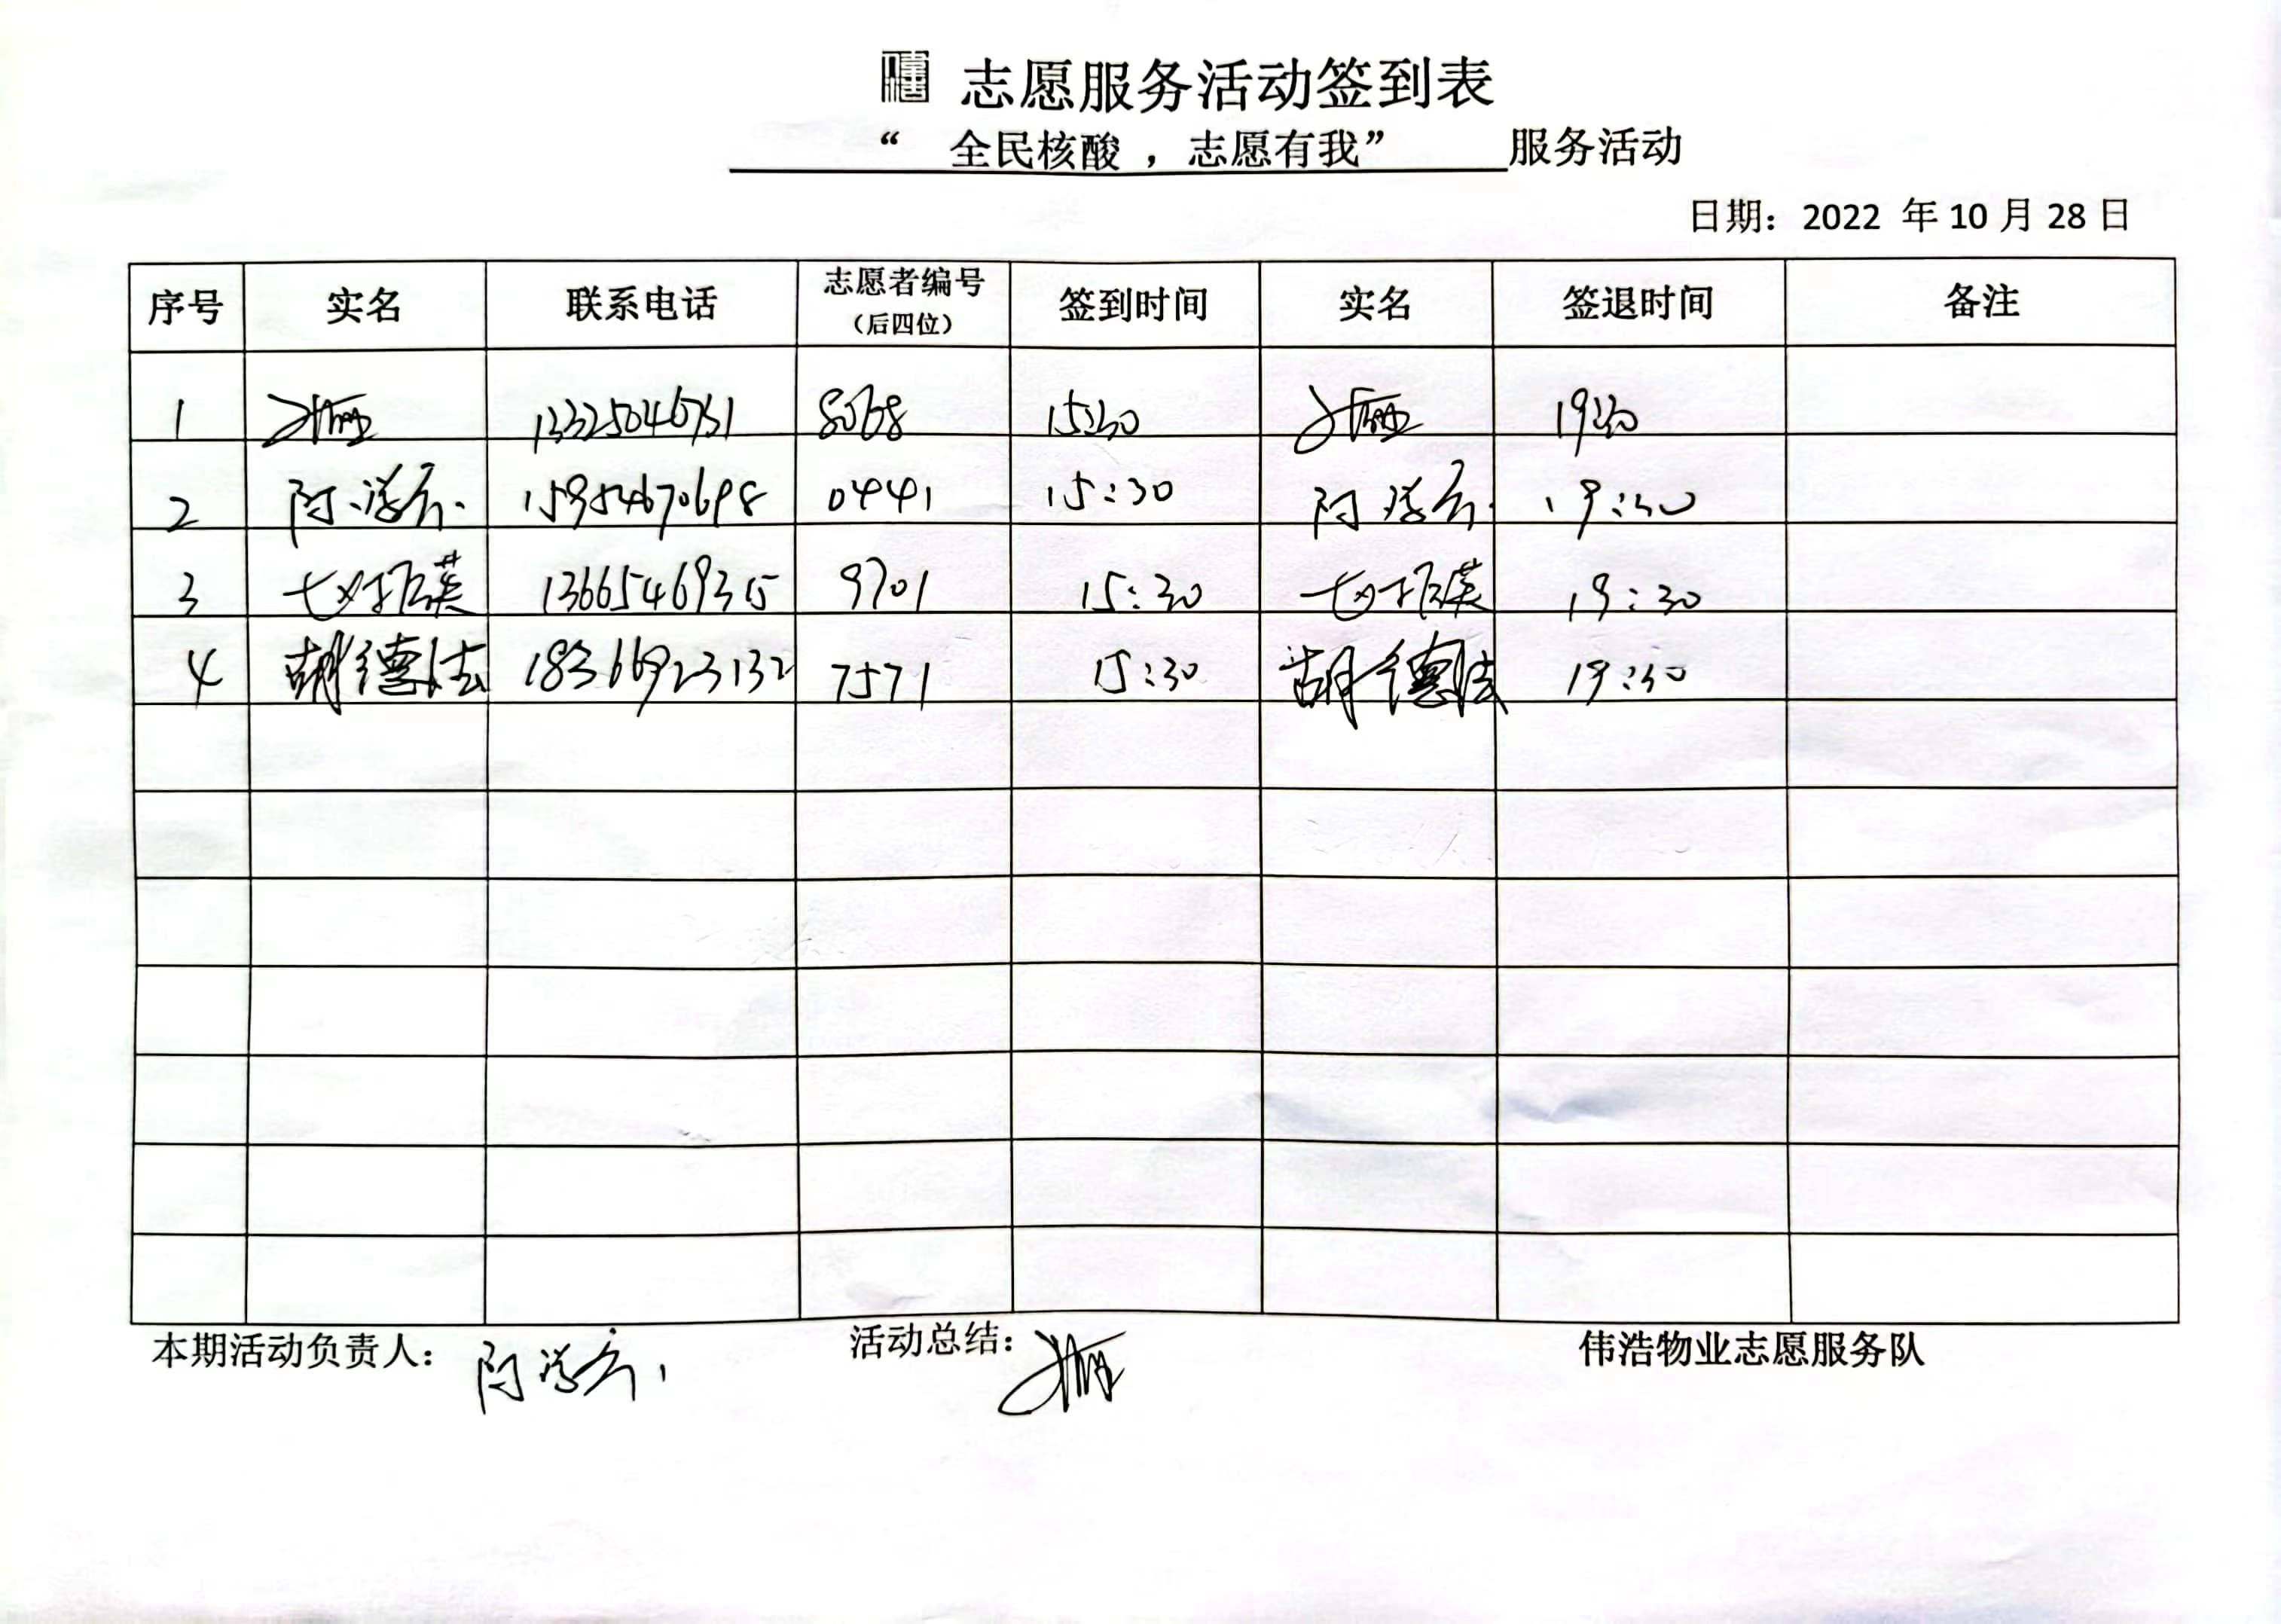 志愿服务活动签到表
“ 全民核酸 ，志愿有我” 服务活动
日期：2022 年 10 月 28 日
序号 实名 联系电话 志愿者编号（后四位） 签到时间 实名 签退时间 备注
1 8068 15:30 19:30
2 15954670698 0441 15:30 19:30
3 13665469315 9701 15:30 19:30
4 胡德法 18366923132 7571 15:30 胡德法 19:30
本期活动负责人： 活动总结： 伟浩物业志愿服务队